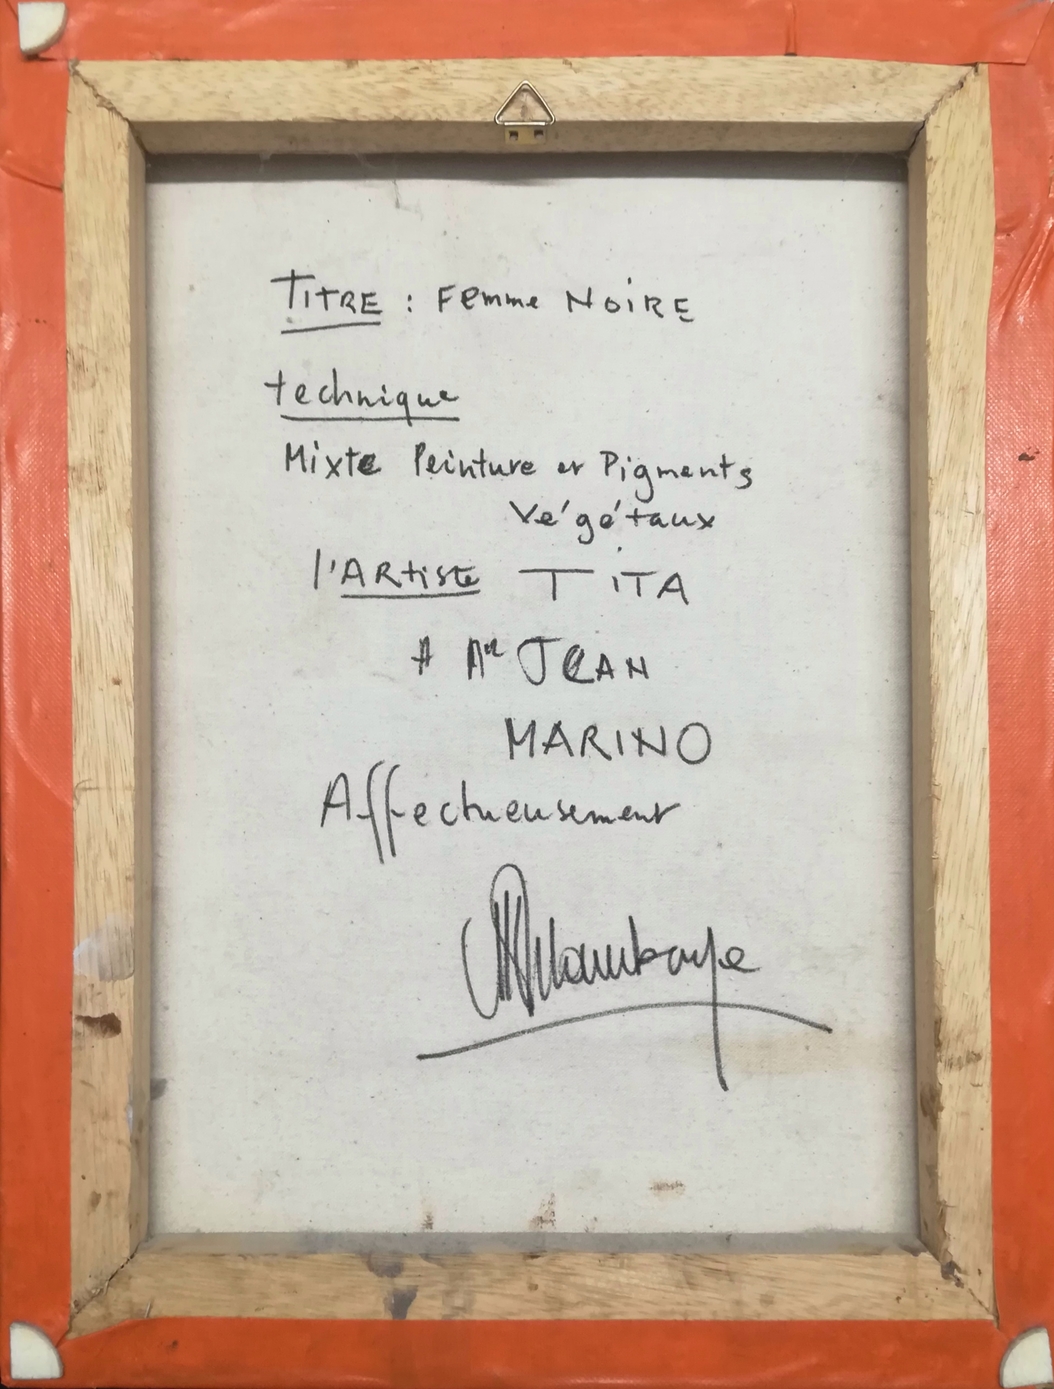 TITRE : Femme NOIRE
technique
Mixte Peinture et Pigments
Végétaux
l'ARtiste TITA
A Mr JEAN
MARINO
Affectueusement